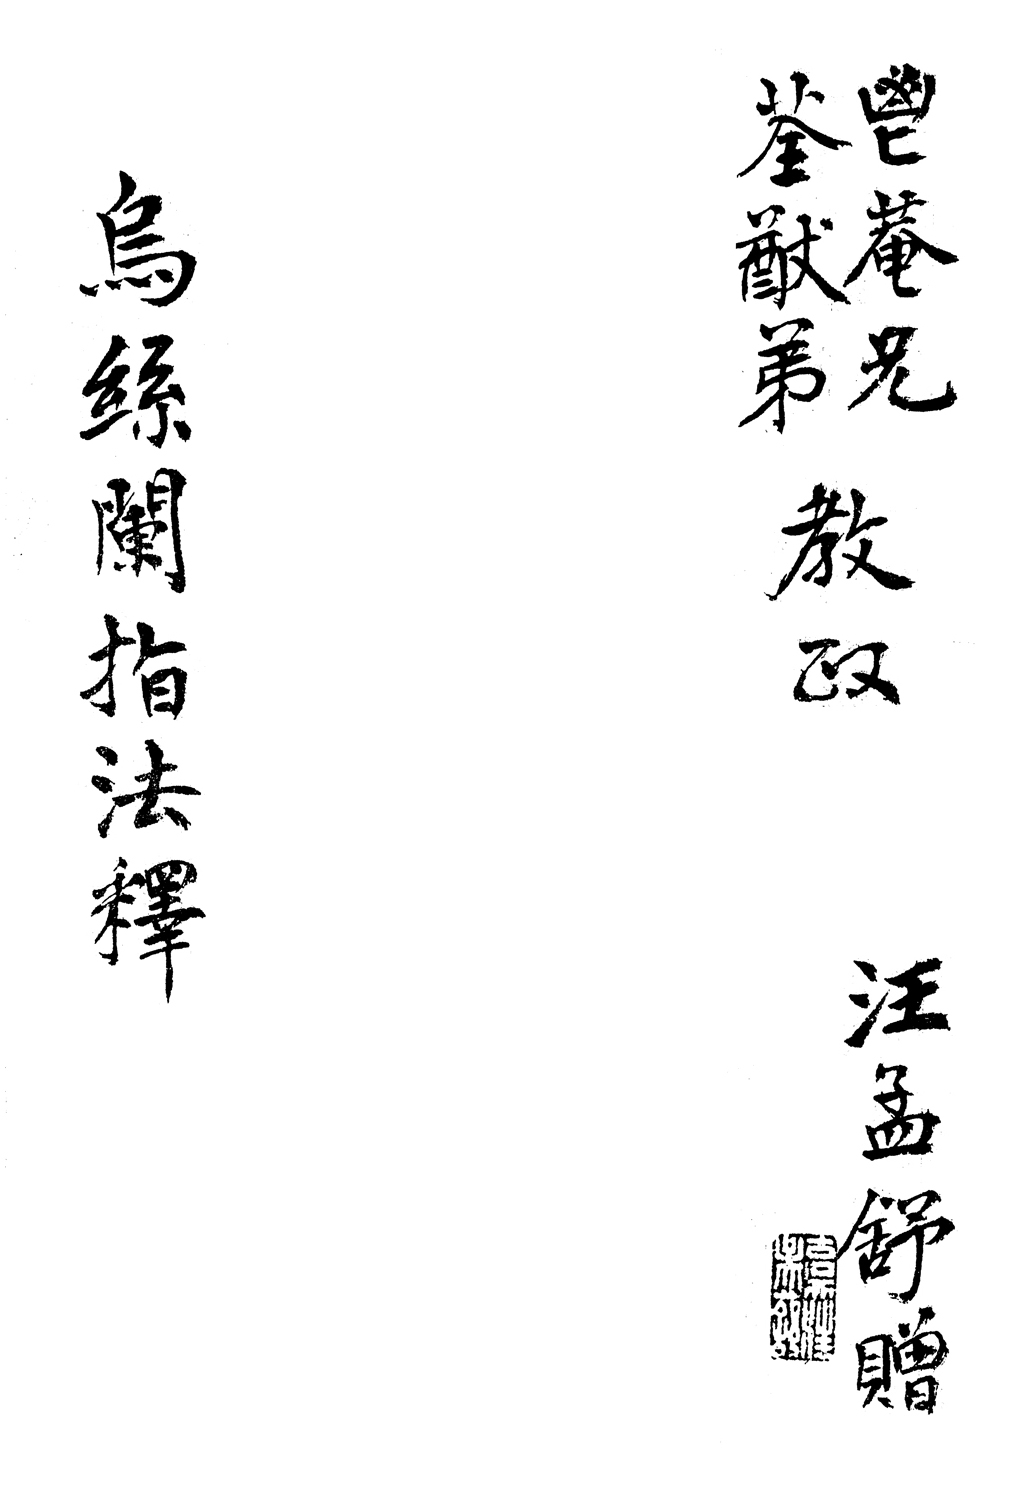 鬯菴兄
荃猷弟
教政
汪孟舒贈
烏絲闌指法釋